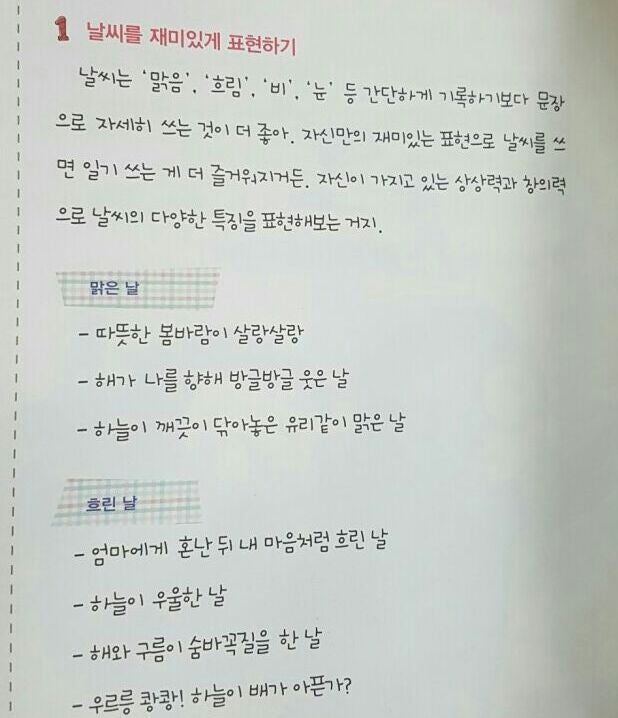 1 날씨를 재미있게 표현하기
날씨는 '맑음', '흐림', '비', '눈' 등 간단하게 기록하기보다 문장
으로 자세히 쓰는 것이 더 좋아. 자신만의 재미있는 표현으로 날씨를 쓰
면 일기 쓰는 게 더 즐거워지거든. 자신이 가지고 있는 상상력과 창의력
으로 날씨의 다양한 특징을 표현해보는 거지.
맑은 날
- 따뜻한 봄바람이 살랑살랑
- 해가 나를 향해 방글방글 웃은 날
- 하늘이 깨끗이 닦아놓은 유리같이 맑은 날
흐린 날
- 엄마에게 혼난 뒤 내 마음처럼 흐린 날
- 하늘이 우울한 날
- 해와 구름이 숨바꼭질을 한 날
- 우르릉 쾅쾅! 하늘이 배가 아픈가?